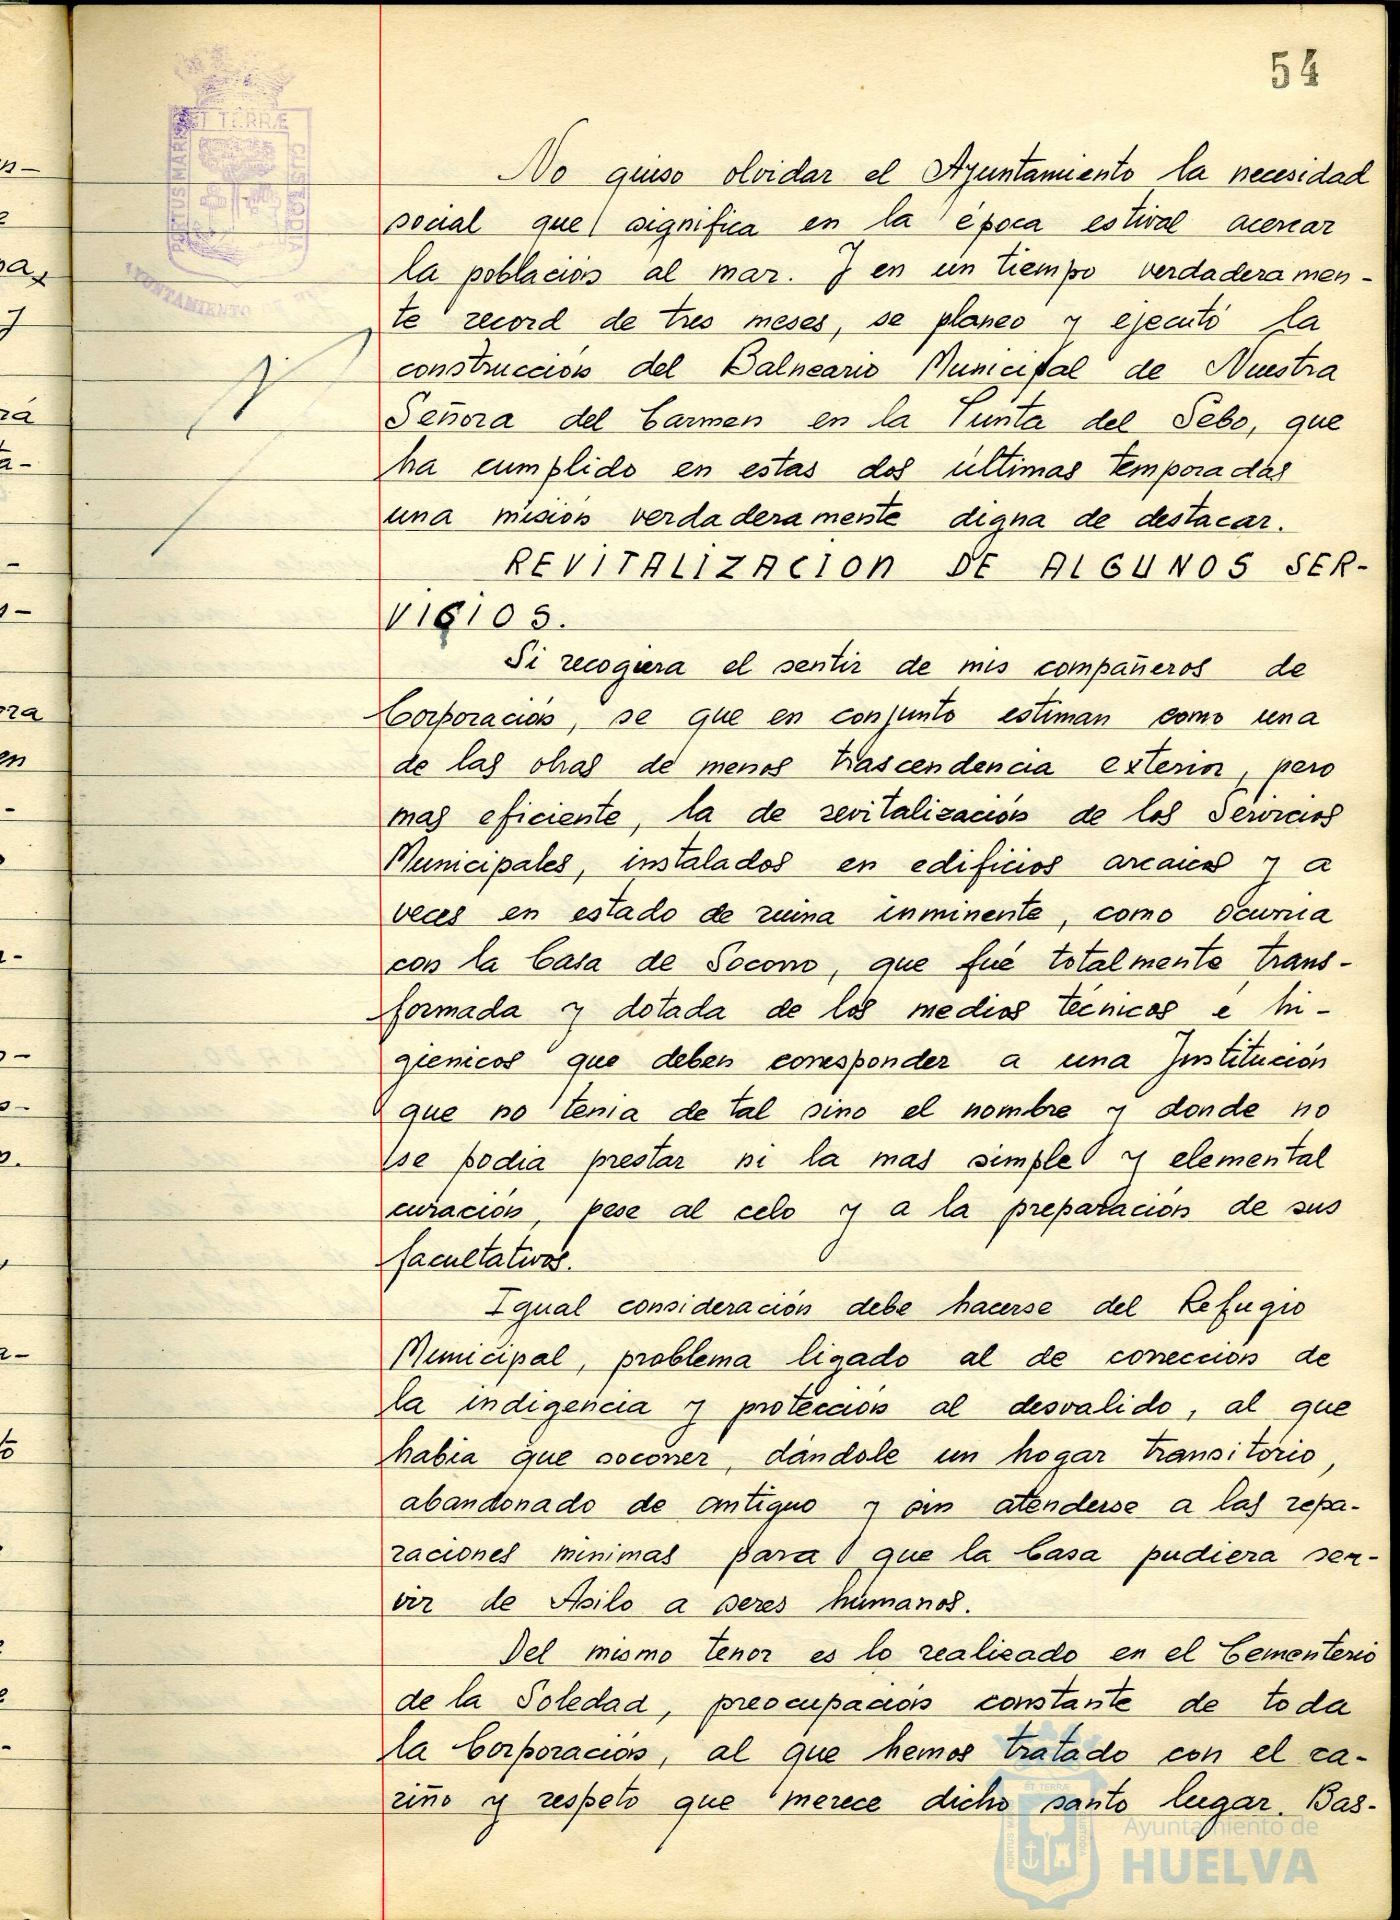 54
PORTUS MARIS ET TERRÆ CUSTODIA
AYUNTAMIENTO DE
No quiso olvidar el Ayuntamiento la necesidad
social que significa en la época estival acercar
la población al mar. Y en un tiempo verdaderamen-
te record de tres meses, se planeo y ejecutó la
construcción del Balneario Municipal de Nuestra
Señora del Carmen en la Punta del Sebo, que
ha cumplido en estas dos últimas temporadas
una misión verdaderamente digna de destacar.
REVITALIZACION DE ALGUNOS SER-
VICIOS.
Si recogiera el sentir de mis compañeros de
Corporación, se que en conjunto estiman como una
de las obras de menos trascendencia exterior, pero
mas eficiente, la de revitalización de los Servicios
Municipales, instalados en edificios arcaicos y a
veces en estado de ruina inminente, como ocurria
con la Casa de Socorro, que fué totalmente trans-
formada y dotada de los medios técnicos é hi-
gienicos que deben corresponder a una Institución
que no tenia de tal sino el nombre y donde no
se podia prestar ni la mas simple y elemental
curación, pese al celo y a la preparación de sus
facultativos.
Igual consideración debe hacerse del Refugio
Municipal, problema ligado al de corrección de
la indigencia y protección al desvalido, al que
habia que socorrer, dándole un hogar transitorio,
abandonado de antiguo y sin atenderse a las repa-
raciones minimas para que la Casa pudiera ser-
vir de Asilo a seres humanos.
Del mismo tenor es lo realizado en el Cementerio
de la Soledad, preocupación constante de toda
la Corporación, al que hemos tratado con el ca-
riño y respeto que merece dicho santo lugar. Bas-
Ayuntamiento de
HUELVA